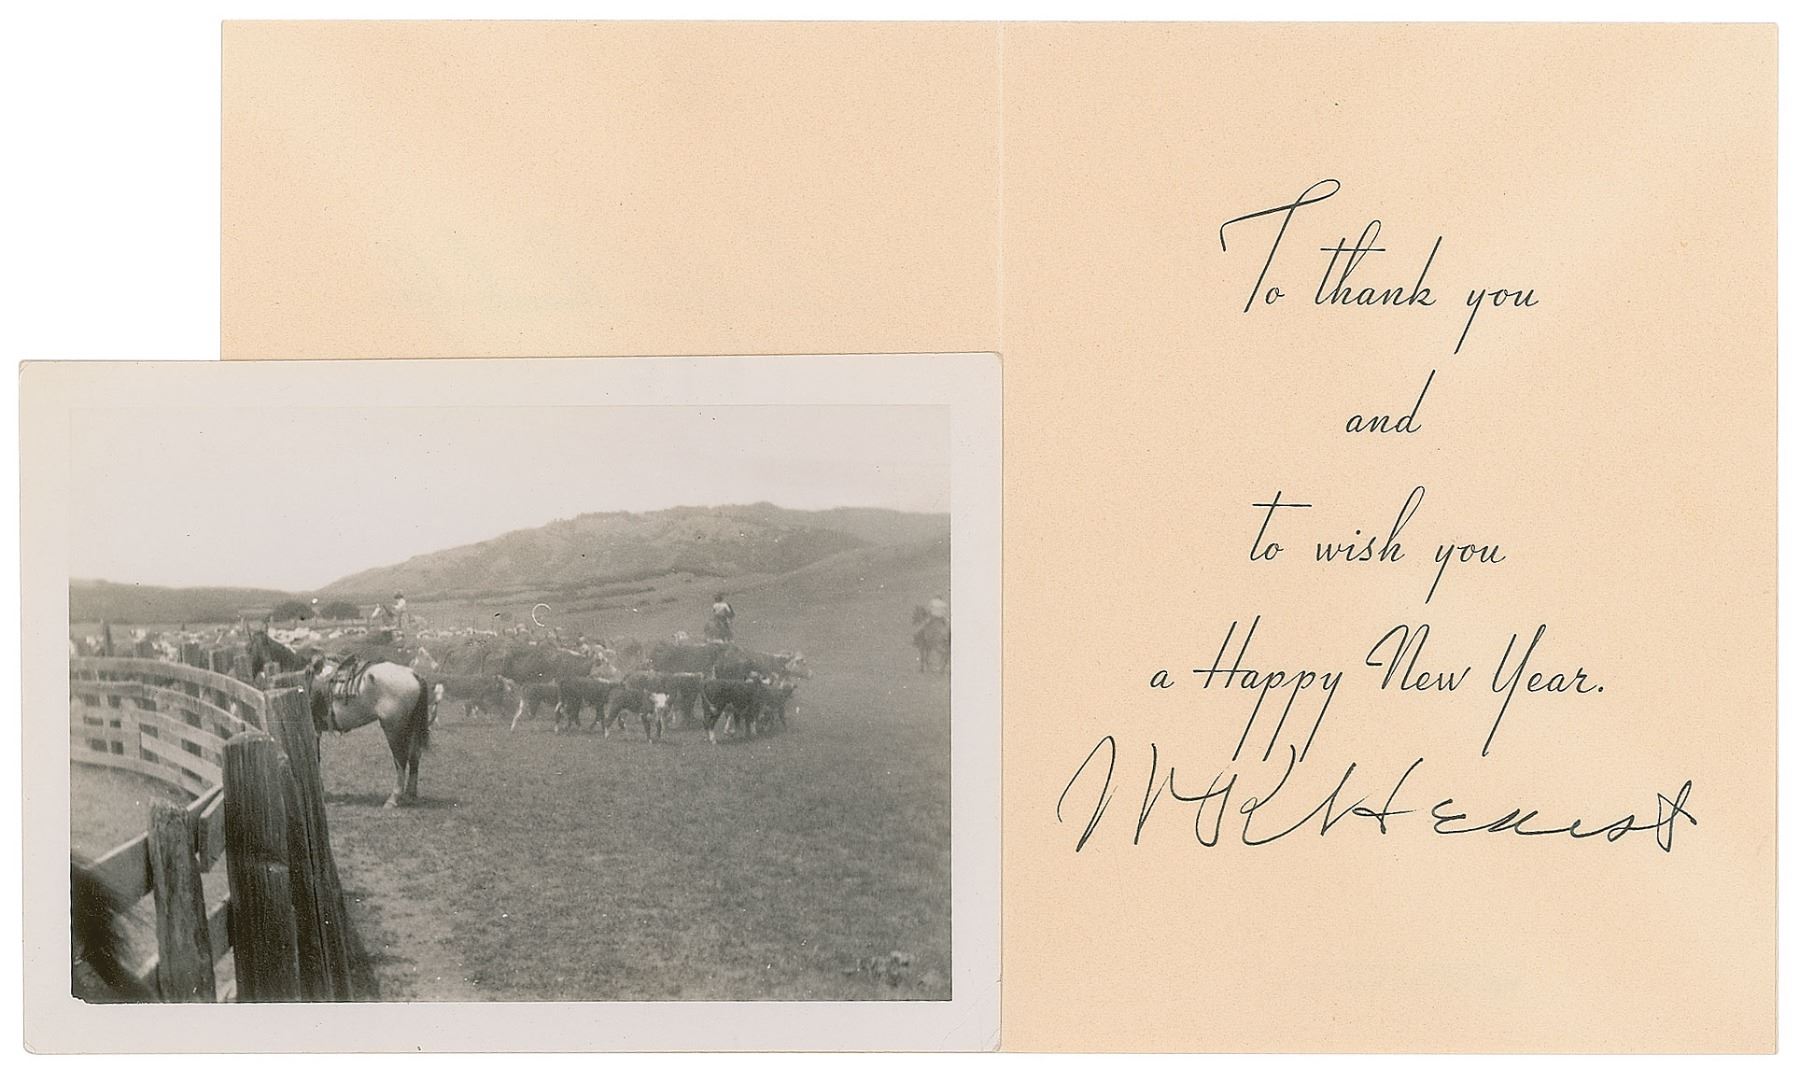 To thank you
and
to wish you
a Happy New Year.
W R Hearst